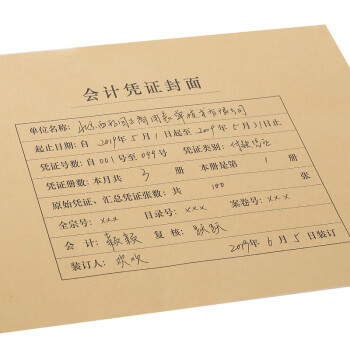 会计凭证封面
单位名称：北京西
起止日期：自 2019 年 5 月 1 日起至 2019 年 5 月 31 日止
凭证号数：自 001 号至 099 号 凭证类别：付款凭证
凭证册数：本月共 3 册 本册是第 1 册
原始凭证、汇总凭证张数：共 100 张
全宗号：xxx 目录号：xxx 案卷号：xxx
会 计： 复 核：
装订人： 2019 年 6 月 5 日装订